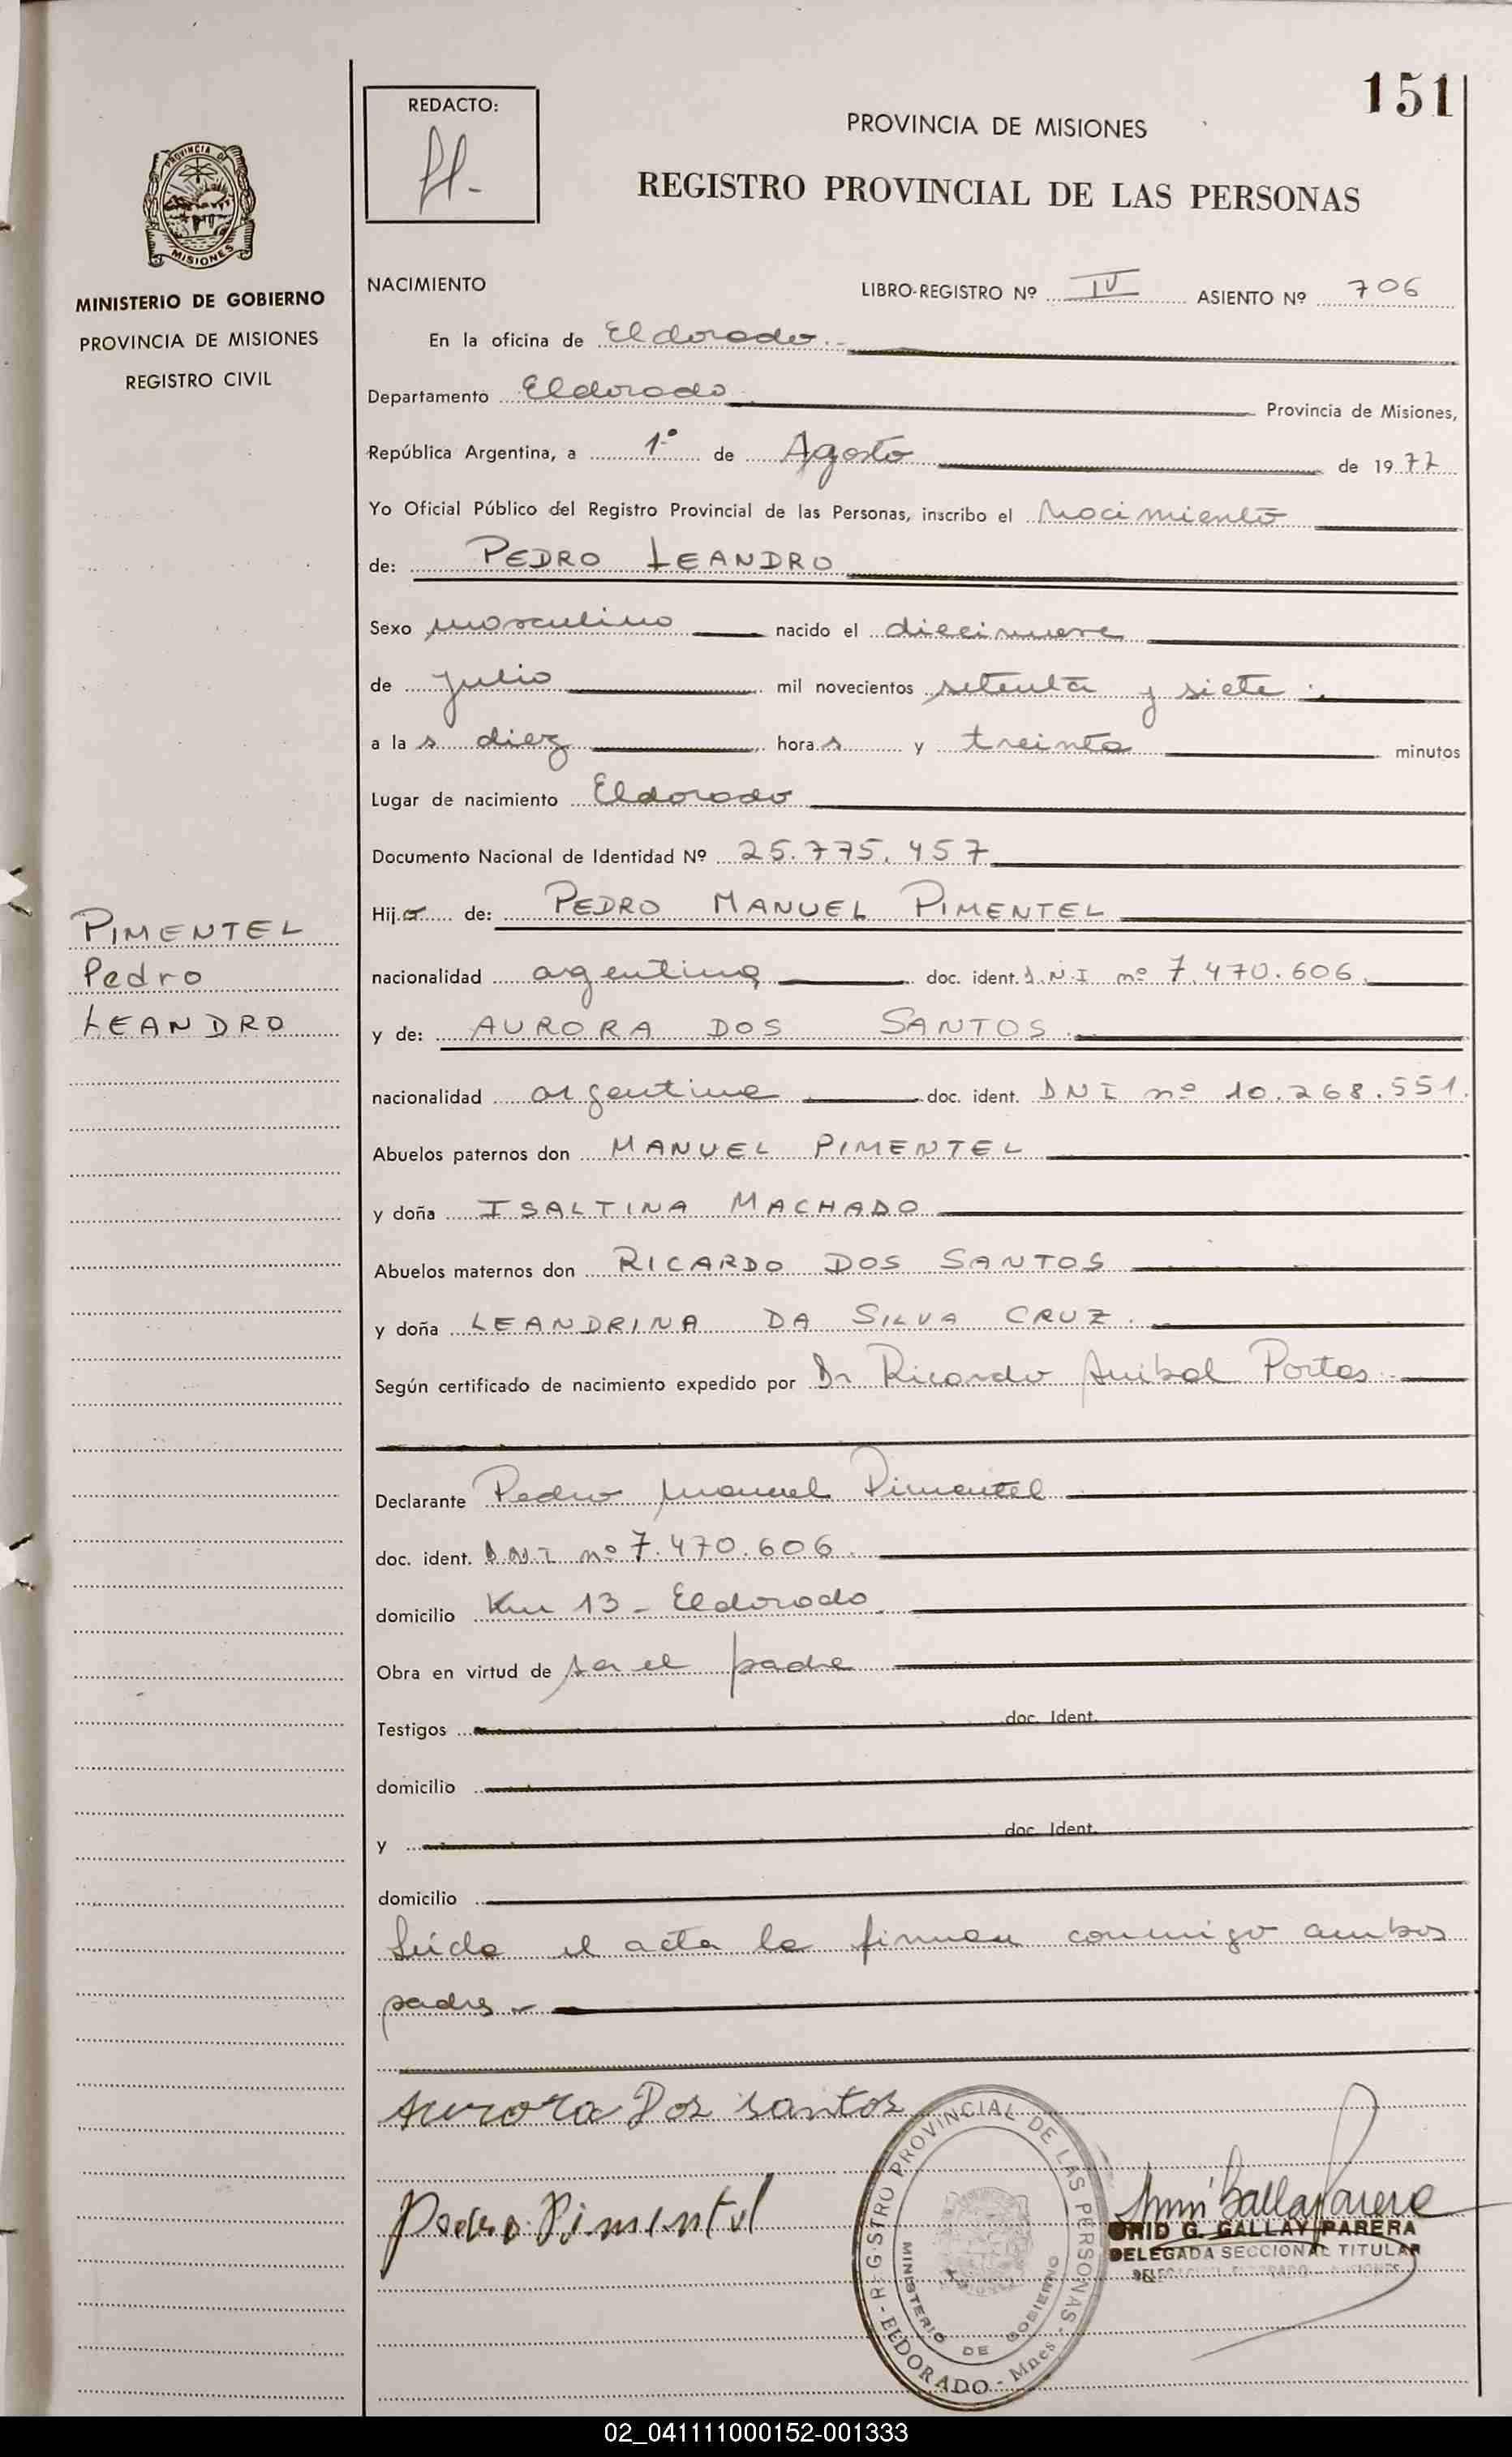 151
REDACTO:
PROVINCIA DE MISIONES
REGISTRO PROVINCIAL DE LAS PERSONAS
PROVINCIA DE
MISIONES
MINISTERIO DE GOBIERNO
PROVINCIA DE MISIONES
REGISTRO CIVIL
NACIMIENTO
LIBRO-REGISTRO Nº IV ASIENTO Nº 706
En la oficina de Eldorado.-
Departamento Eldorado Provincia de Misiones,
República Argentina, a 1º de Agosto de 1977
Yo Oficial Público del Registro Provincial de las Personas, inscribo el Nacimiento
de: PEDRO LEANDRO
Sexo masculino nacido el diecinueve
de julio mil novecientos setenta y siete
a las diez horas y treinta minutos
Lugar de nacimiento Eldorado
Documento Nacional de Identidad Nº 25.775.457
Hijo de: PEDRO MANUEL PIMENTEL
PIMENTEL
Pedro
LEANDRO
nacionalidad argentina doc. ident. D.N.I nº 7.470.606
y de: AURORA DOS SANTOS
nacionalidad argentina doc. ident. DNI nº 10.268.551.
Abuelos paternos don MANUEL PIMENTEL
y doña ISALTINA MACHADO
Abuelos maternos don RICARDO DOS SANTOS
y doña LEANDRINA DA SILVA CRUZ.
Según certificado de nacimiento expedido por Dr Ricardo Anibal Portas
Declarante Pedro Manuel Pimentel
doc. ident. D.N.I nº 7.470.606.
domicilio Km 13 - Eldorado.
Obra en virtud de ser el padre
Testigos doc. Ident.
domicilio
y doc. Ident.
domicilio
Leída el acta la firman conmigo ambos
padres
Aurora Dos santos
Pedro Pimentel
REGISTRO PROVINCIAL DE LAS PERSONAS - ELDORADO - Mnes
MINISTERIO DE GOBIERNO
G. GALLAY PARERA
DELEGADA SECCIONAL TITULAR
02_041111000152-001333